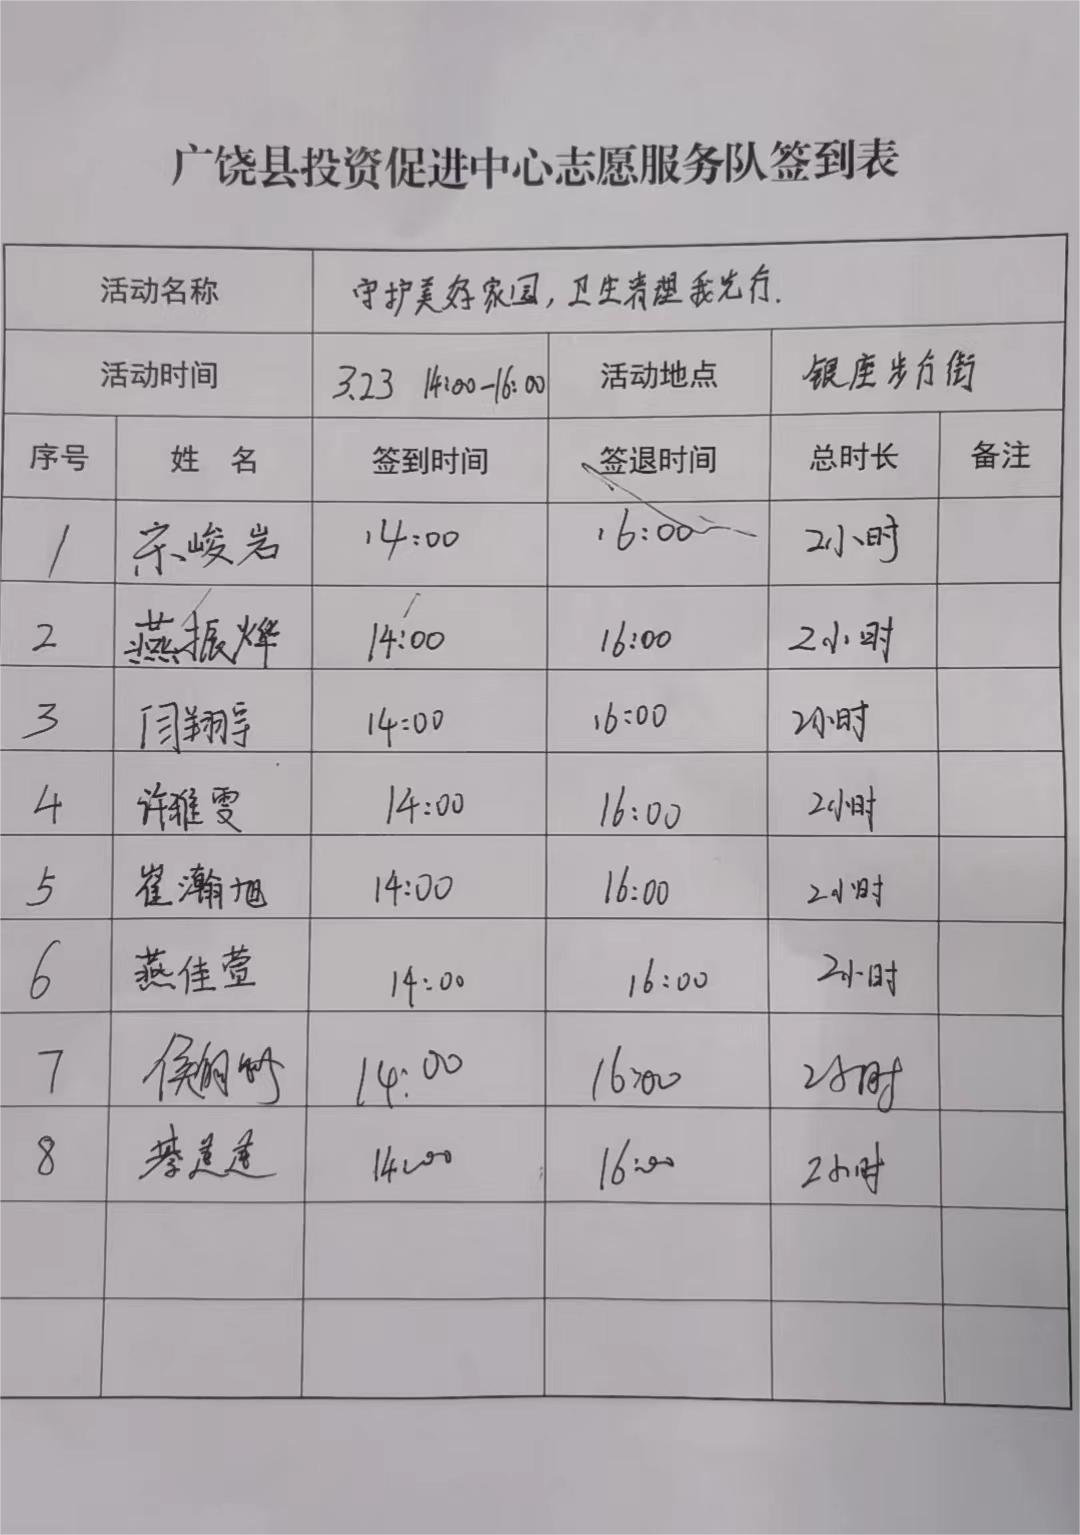 广饶县投资促进中心志愿服务队签到表
活动名称 守护美好家园，卫生清理我先行.
活动时间 3.23 14:00-16:00 活动地点 银座步行街
序号 姓 名 签到时间 签退时间 总时长 备注
1 宋峻岩 14:00 16:00 2小时
2 燕振烨 14:00 16:00 2小时
3 闫翔宇 14:00 16:00 2小时
4 许雅雯 14:00 16:00 2小时
5 崔瀚旭 14:00 16:00 2小时
6 燕佳萱 14:00 16:00 2小时
7 侯 14:00 16:00 2小时
8 14:00 16:00 2小时